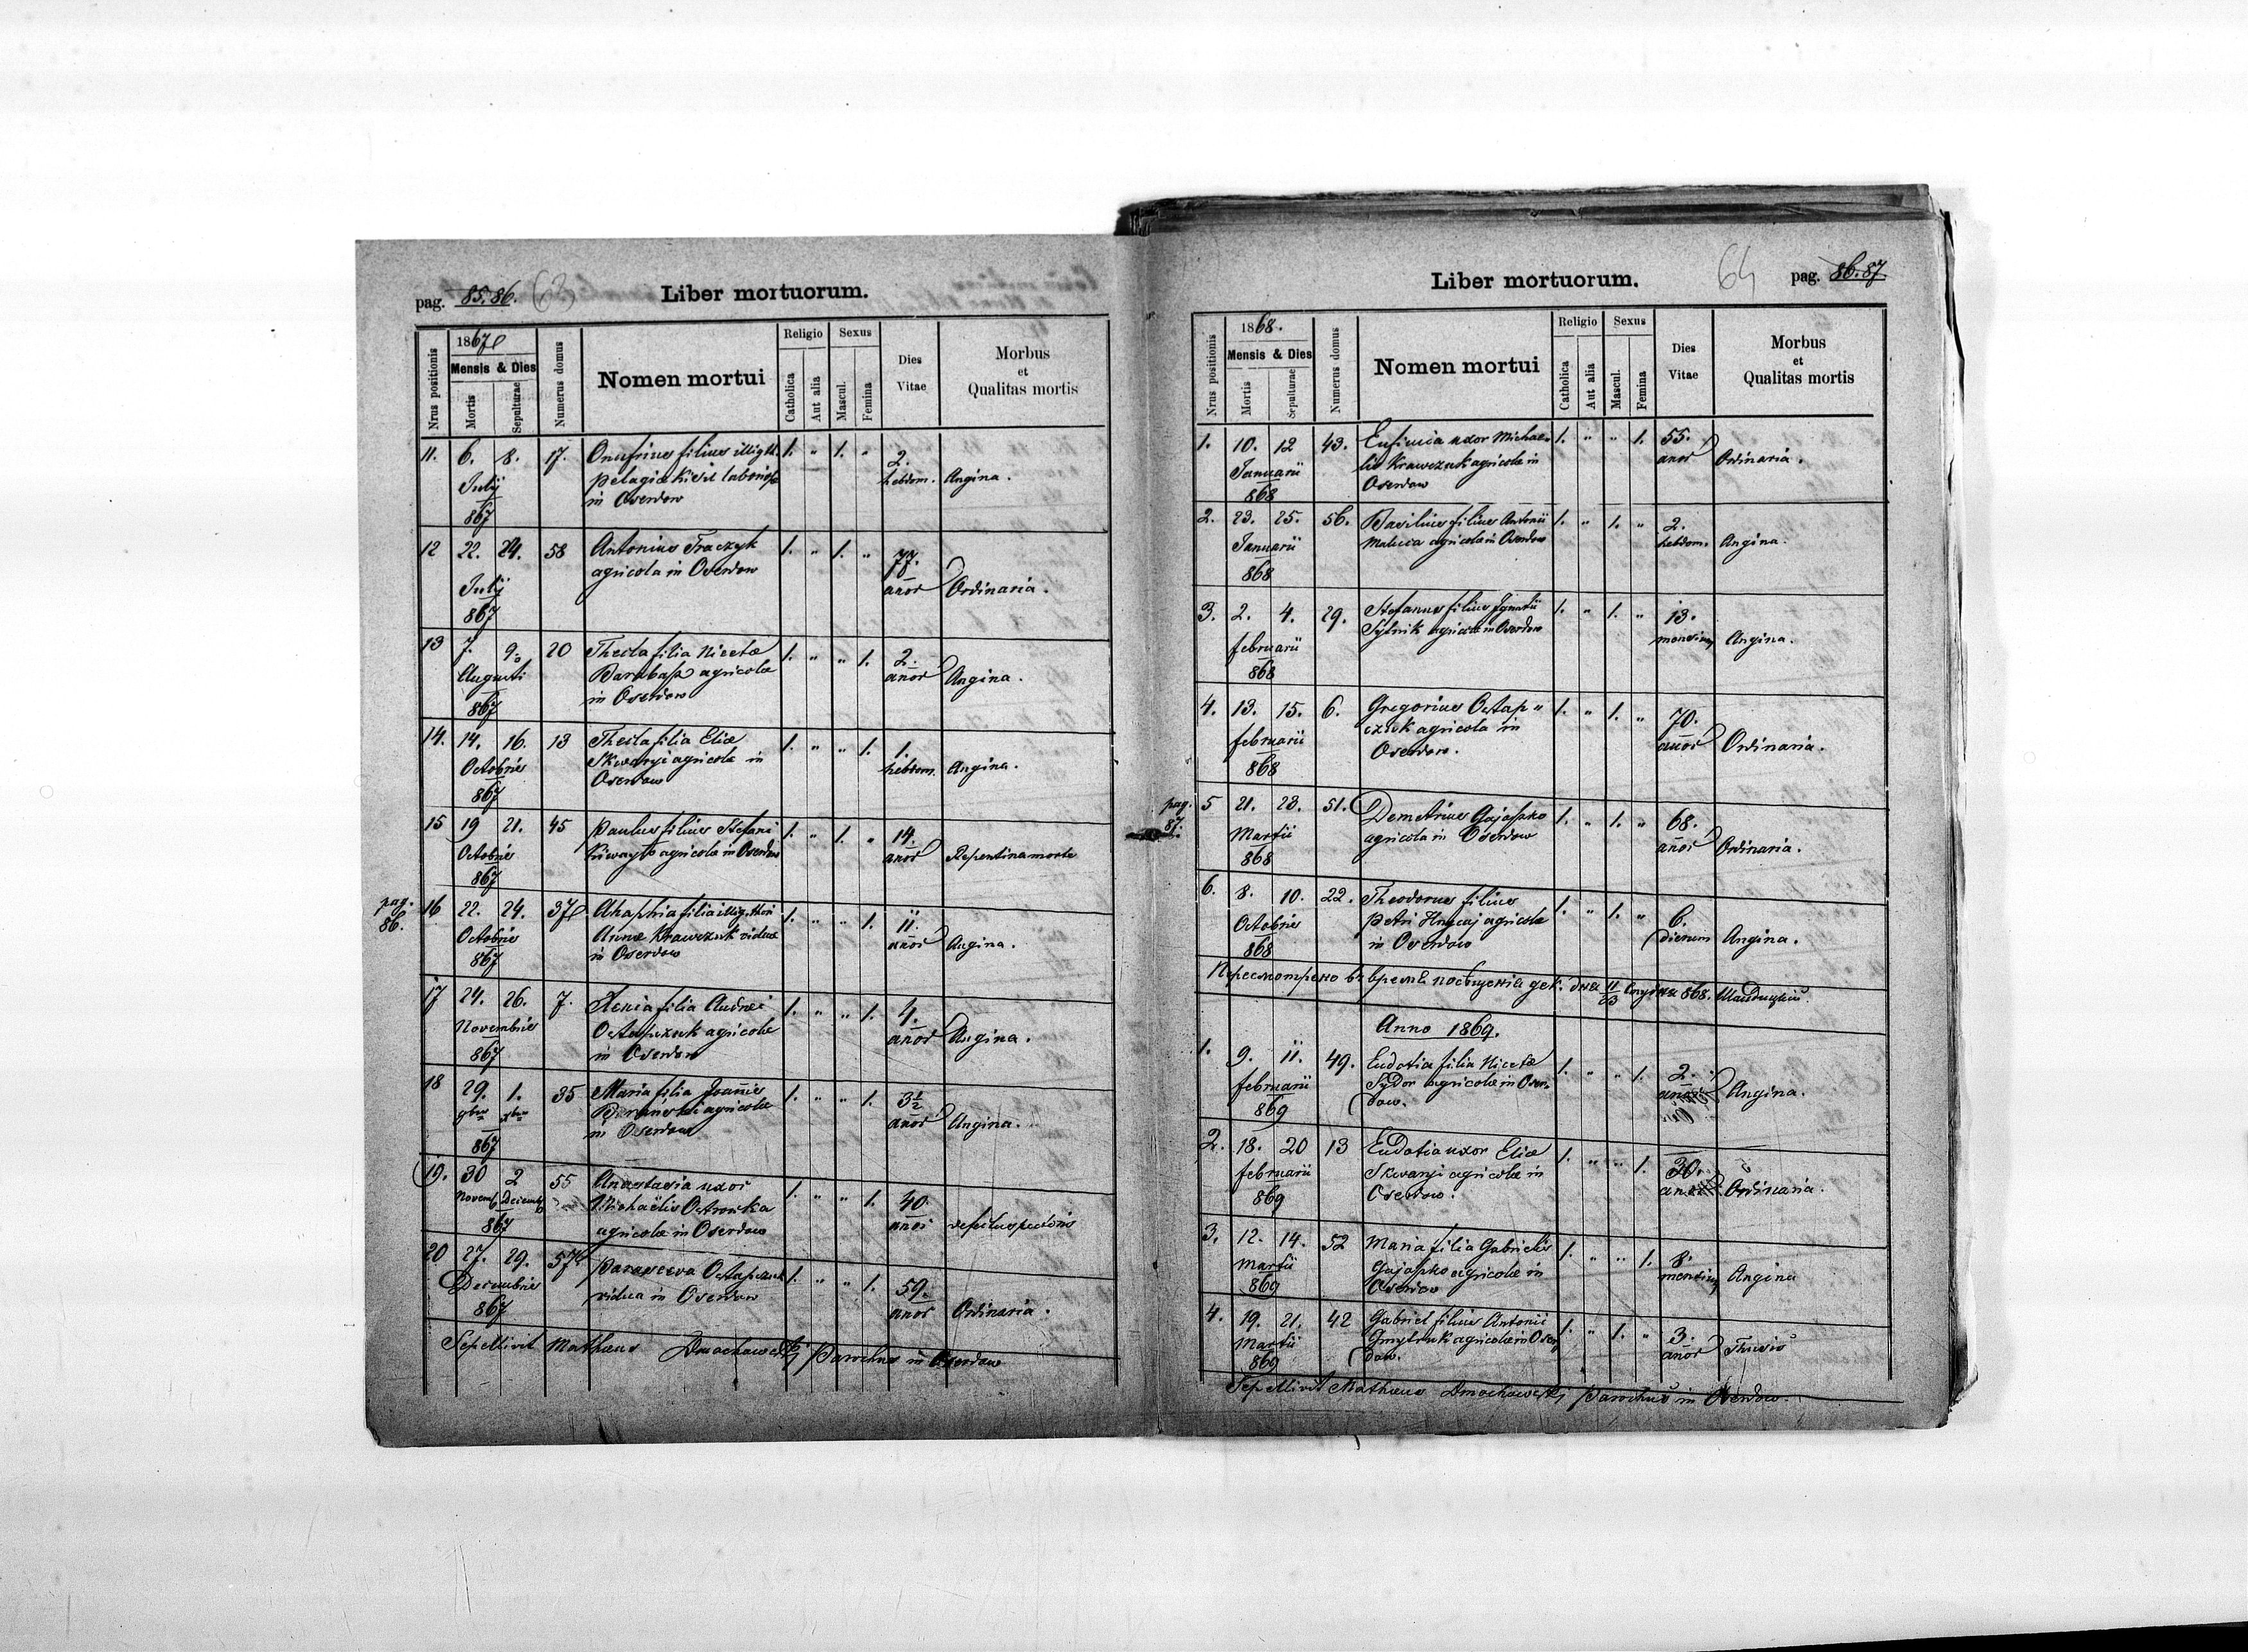 pag. 85.86. (63)
Liber mortuorum.
Nrus positionis
1867
Mensis & Dies
Mortis
Sepulturae
Numerus domus
Nomen mortui
Religio
Catholica
Aut alia
Sexus
Mascul.
Femina
Dies Vitae
Morbus
et
Qualitas mortis
11. 6. 8. 17. Onufrius filius illigth. 1. " 1. " 2.
Julij Pelagiæ laboriosæ hebdom. Angina.
867 in Oserdow
12 22. 24. 58 Antonius Traczyk 1. " 1. " 77.
Julij agricola in Oserdow anor Ordinaria.
867
13 7. 9. 20 Thecla filia Nicetæ 1. " " 1. 2.
Augusti agricolæ anor Angina.
867 in Oserdow
14. 14. 16. 13 Thecla filia Eliæ 1. " " 1. 1.
Octobris Skwaryi agricolæ in hebdom. Angina.
867 Oserdow
15 19 21. 45 Paulus filius Stefani 1. " 1. " 14.
Octobris agricolæ in Oserdow anor Repentina morte
867
pag. 86.
16 22. 24. 37 Ahaphia filia illigthri 1. " " 1. 11.
Octobris Annæ Krawczuk viduæ anor Angina.
867 in Oserdow
17 24. 26. 7. Xenia filia Andrei 1. " " 1. 4.
Novembris Ostapczuk agricolæ anor Angina.
867 in Oserdow
18 29. 1. 35 Maria filia Joannis 1. " " 1. 3½
9bris xbris agricolæ anor Angina.
867 in Oserdow
19. 30 2 55 Anastasia uxor 1. " " 1. 40.
Novemb Decemb Michaëlis Ostrowka anor defectus pectoris
867 agricolæ in Oserdow
20 27. 29. 57 Parasceva Ostapczuk 1. " " 1. 59.
Decembris vidua in Oserdow anor Ordinaria.
867
Sepellivit Mathæus Dmochowski Parochus in Oserdow
Liber mortuorum.
64
pag. 86.87
Nrus positionis
1868.
Mensis & Dies
Mortis
Sepulturae
Numerus domus
Nomen mortui
Religio
Catholica
Aut alia
Sexus
Mascul.
Femina
Dies Vitae
Morbus
et
Qualitas mortis
1. 10. 12 43. Eufimia uxor Michae- 1. " " 1. 55.
Januarii lis Krawczuk agricolæ in anor Ordinaria.
868 Oserdow
2. 23. 25. 56. Basilius filius Antonii 1. " 1. " 2.
Januarii agricolæ in Oserdow hebdom. Angina.
868
3. 2. 4. 29. Stefanus filius Ignatii 1. " 1. " 13.
februarii Sytnik agricolæ in Oserdow mensium Angina.
868
4. 13. 15. 6. Gregorius Ostap" 1. " 1. " 70.
februarii czuk agricola in anor Ordinaria.
868 Oserdow.
pag. 87.
5 21. 23. 51. Demetrius Gajapko 1. " 1. " 68.
Martii agricola in Oserdow anor Ordinaria.
868
6. 8. 10. 22. Theodorus filius 1. " 1. " 6.
Octobris Petri Hrycaj agricolæ dierum Angina.
868 in Oserdow
Пересмотрено въ время посѣщенія дек. дня 11/23 868.
Anno 1869.
1. 9. 11. 49. Eudotia filia Nicetæ 1. " " 1. 2.
februarii Sydor agricolæ in Oser- anor Angina.
869 dow.
2. 18. 20 13 Eudotia uxor Eliæ 1. " " 1. 30.
februarii Skwaryi agricolæ in anor Ordinaria.
869 Oserdow.
3. 12. 14. 52 Maria filia Gabrielis 1. " " 1. 8.
Martii Gajapko agricolæ in mensium Angina
869 Oserdow
4. 19. 21. 42 Gabriel filius Antonii 1. " 1. " 3.
Martii Gmytruk agricolæ in Oser anor Thisis
869 dow.
Sepellivit Mathæus Dmochowski Parochus in Oserdow.